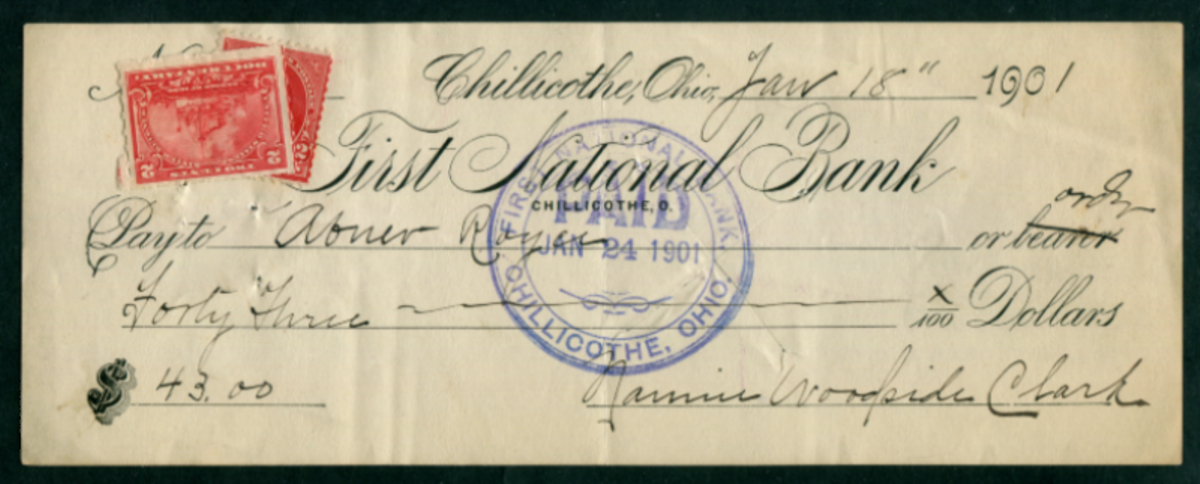 Chillicothe, Ohio, Jan 18" 1901
First National Bank
CHILLICOTHE, O.
Pay to Abner Royce or bearer order
Forty Three x/100 Dollars
$ 43.00
Nannie Woodside Clark
FIRST NATIONAL BANK
PAID
JAN 24 1901
CHILLICOTHE, OHIO
DOCUMENTARY
2 TWO CENTS 2